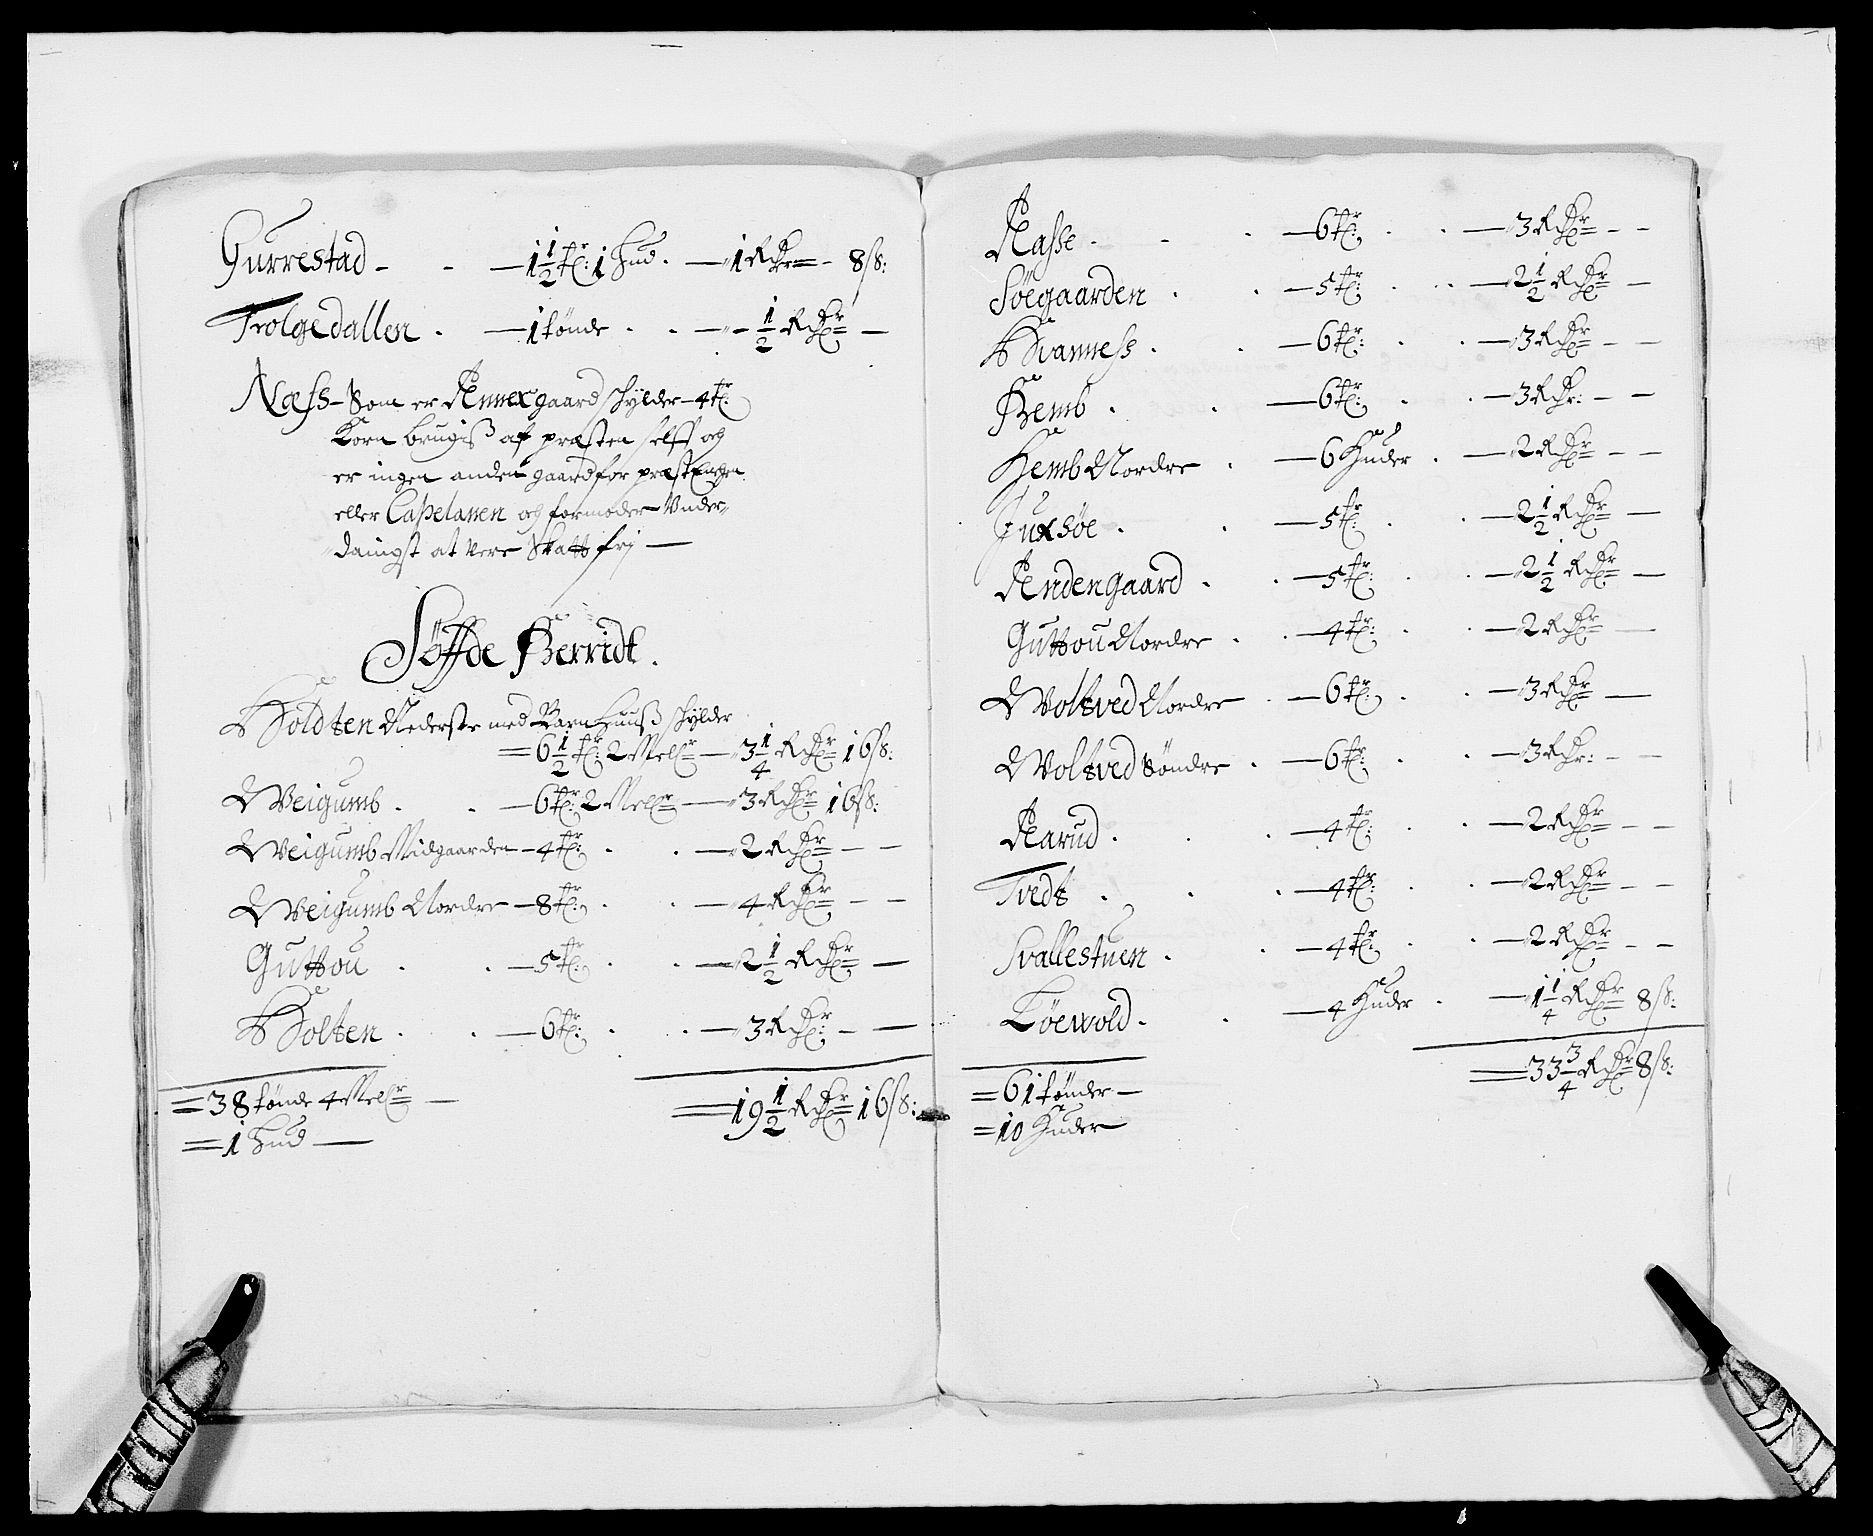 Gurrestad - - — 1 1/2 tr: 1 Hud. — 1 Rdr — 8 ß:
Trolgedallen . — 1 tønde . . — 1/2 Rdr —
Næss - Som er Annex gaard schylder — 4 tr:
Korn brugiß af præsten selff och
er ingen anden gaard for præst Enchen
eller Capelanen och formoder Vnder-
daingst at vere Skatt frj —
Søffde Herridt.
Holdten Nederste med Barn Huuß schylder
= 6 1/2 tr: 2 Melr — 3 1/4 Rdr 16 ß:
Weigumb . . — 6 tr: 2 Melr — 3 Rdr 16 ß:
Weigumb Midgaarden — 4 tr: . . — 2 Rdr — —
Weigumb Nordre — 8 tr: . . — 4 Rdr — —
Guttou . . — 5 tr: . . — 2 1/2 Rdr —
Holten . . — 6 tr: . . — 3 Rdr — —
= 38 tønde 4 Melr —
= 19 1/2 Rdr 16 ß:
= 1 Hud —
Aasse . . . — 6 tr: . . — 3 Rdr — —
Søegaarden . . — 5 tr: . . — 2 1/2 Rdr —
Hvanness . . — 6 tr: . . — 3 Rdr — —
Hemb . . — 6 tr: . . — 3 Rdr: — —
Hemb Nordre . — 6 Huder . — 2 Rdr — —
Juxsøe . . — 5 tr: . . — 2 1/2 Rdr —
Andengaard . . — 5 tr: . . — 2 1/2 Rdr —
Guttou Nordre . . — 4 tr: . . — 2 Rdr —
Woltved Nordre . — 6 tr: . . — 3 Rdr —
Woltved Søndre . — 6 tr: . . — 3 Rdr: — —
Aarud . . . — 4 tr: . . — 2 Rdr — —
Tvedt . . . — 4 tr: . . — 2 Rdr — —
Svallestuen . . — 4 tr: . . — 2 Rdr — —
Löewold . . — 4 Huder . — 1 1/4 Rdr 8 ß:
= 33 3/4 Rdr 8 ß:
= 61 tønder —
= 10 Huder